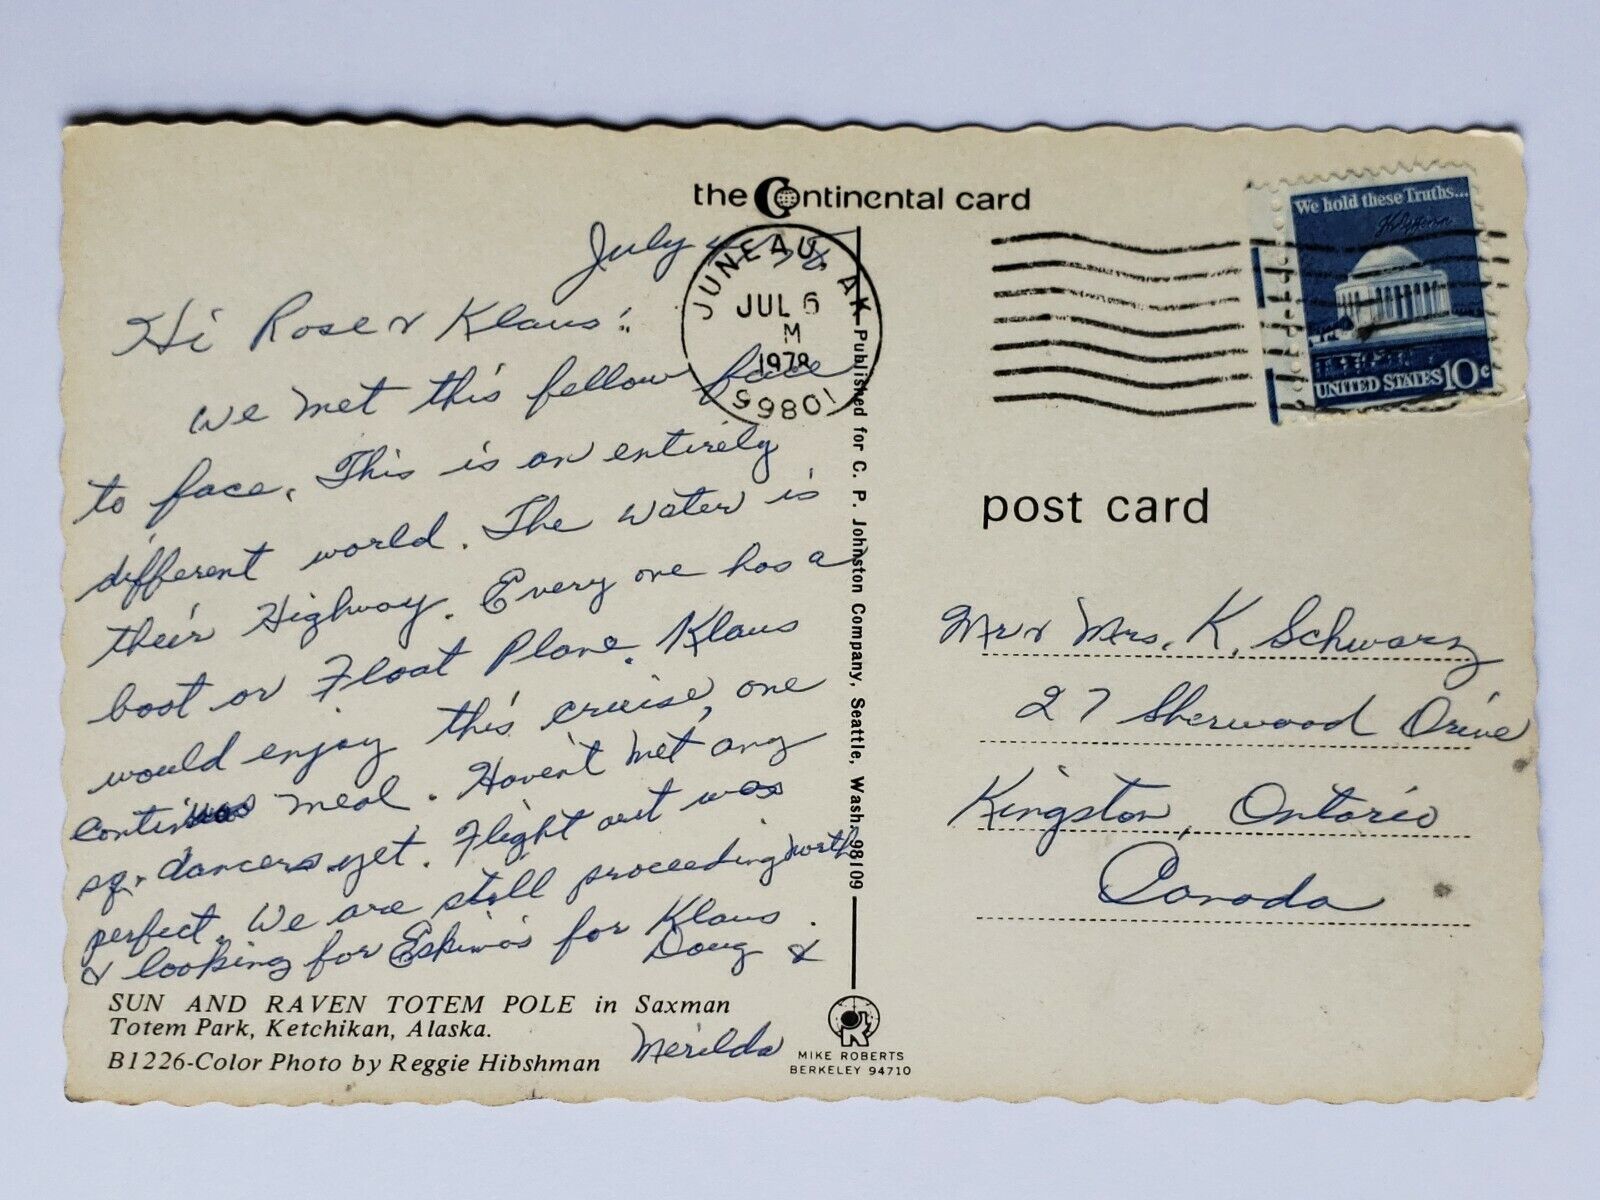 the Continental card
July 4/78
Hi Rose & Klaus:
We met this fellow face
to face. This is an entirely
different world. The water is
their Highway. Every one has a
boat or Float Plane. Klaus
would enjoy this cruise, one
continuos meal. Haven't met any
sq. dancers yet. Flight out was
perfect. We are still proceeding north
& looking for Eskimos for Klaus.
Doug &
Merilda
SUN AND RAVEN TOTEM POLE in Saxman
Totem Park, Ketchikan, Alaska.
B1226-Color Photo by Reggie Hibshman
JUNEAU, AK
JUL 6
M
1978
99801
Published for C. P. Johnston Company, Seattle, Wash. 98109
MIKE ROBERTS
BERKELEY 94710
We hold these Truths...
UNITED STATES 10c
post card
Mr & Mrs. K. Schwarz
27 Sherwood Drive
Kingston, Ontario
Canada